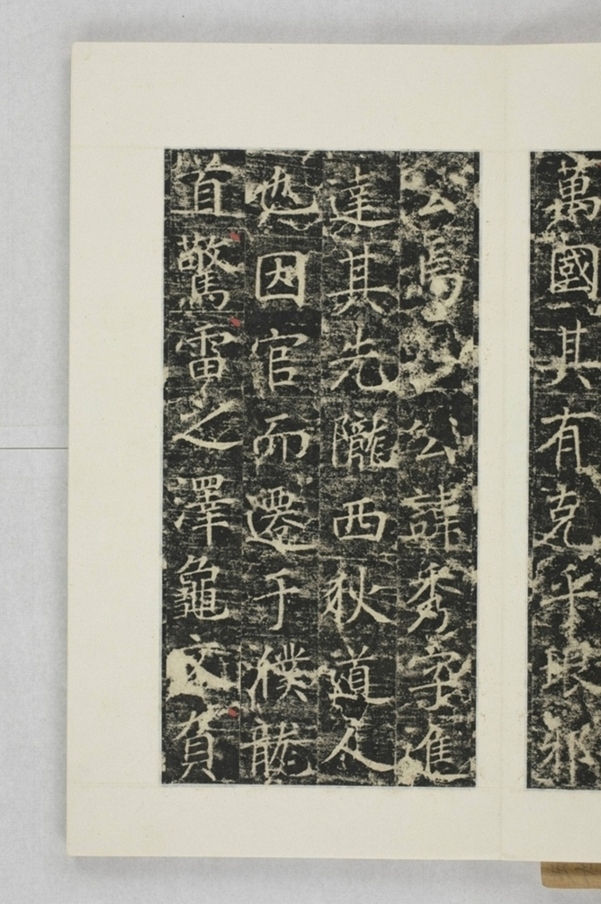 萬國其有克平邪
公焉公諱秀字進
達其先隴西狄道人
也因官而遷于龍
首驚雷之澤龜文負